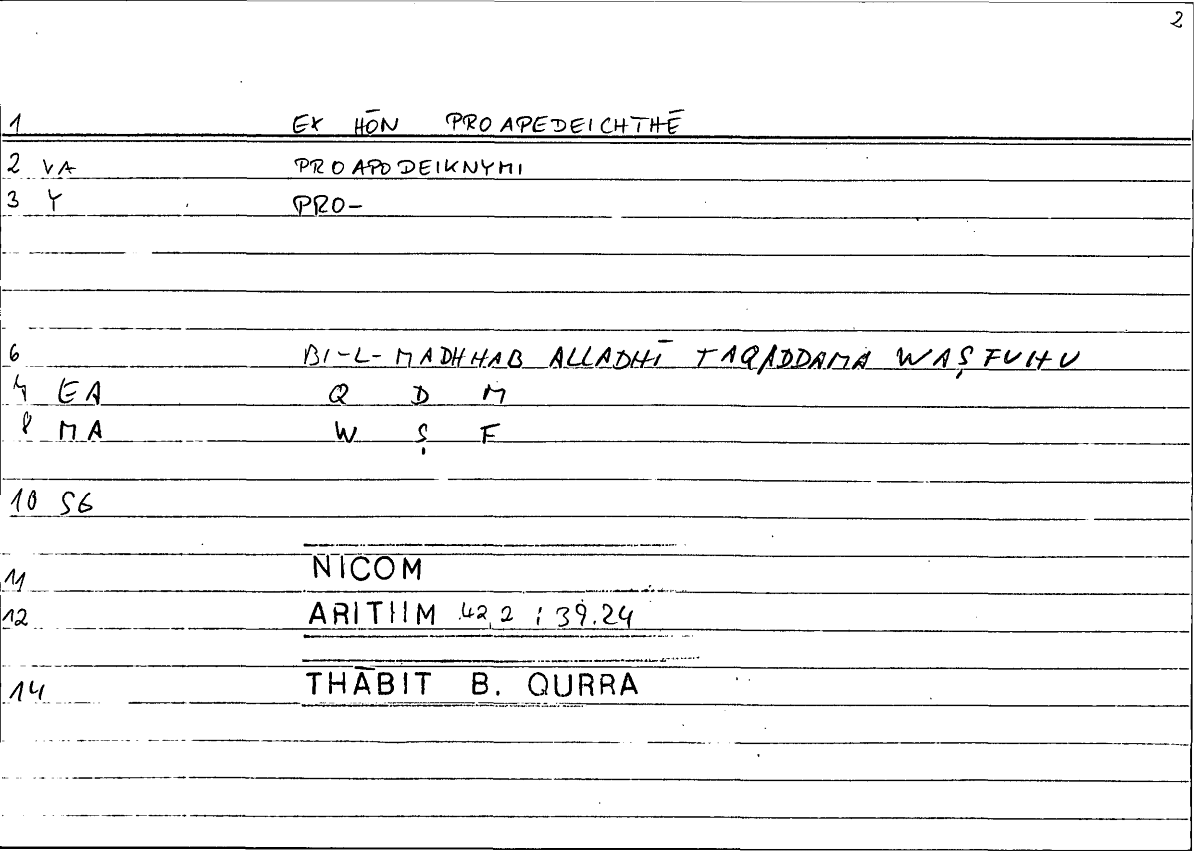 2
1 EX HŌN PROAPEDEICHTHĒ
2 VA PROAPODEIKNYMI
3 Y PRO-
6 BI-L-MADHHAB ALLADHĪ TAQADDAMA WAṢFUHU
7 EA Q D M
8 MA W Ṣ F
10 SG
11 NICOM
12 ARITHM 42,2 ; 39.24
14 THĀBIT B. QURRA